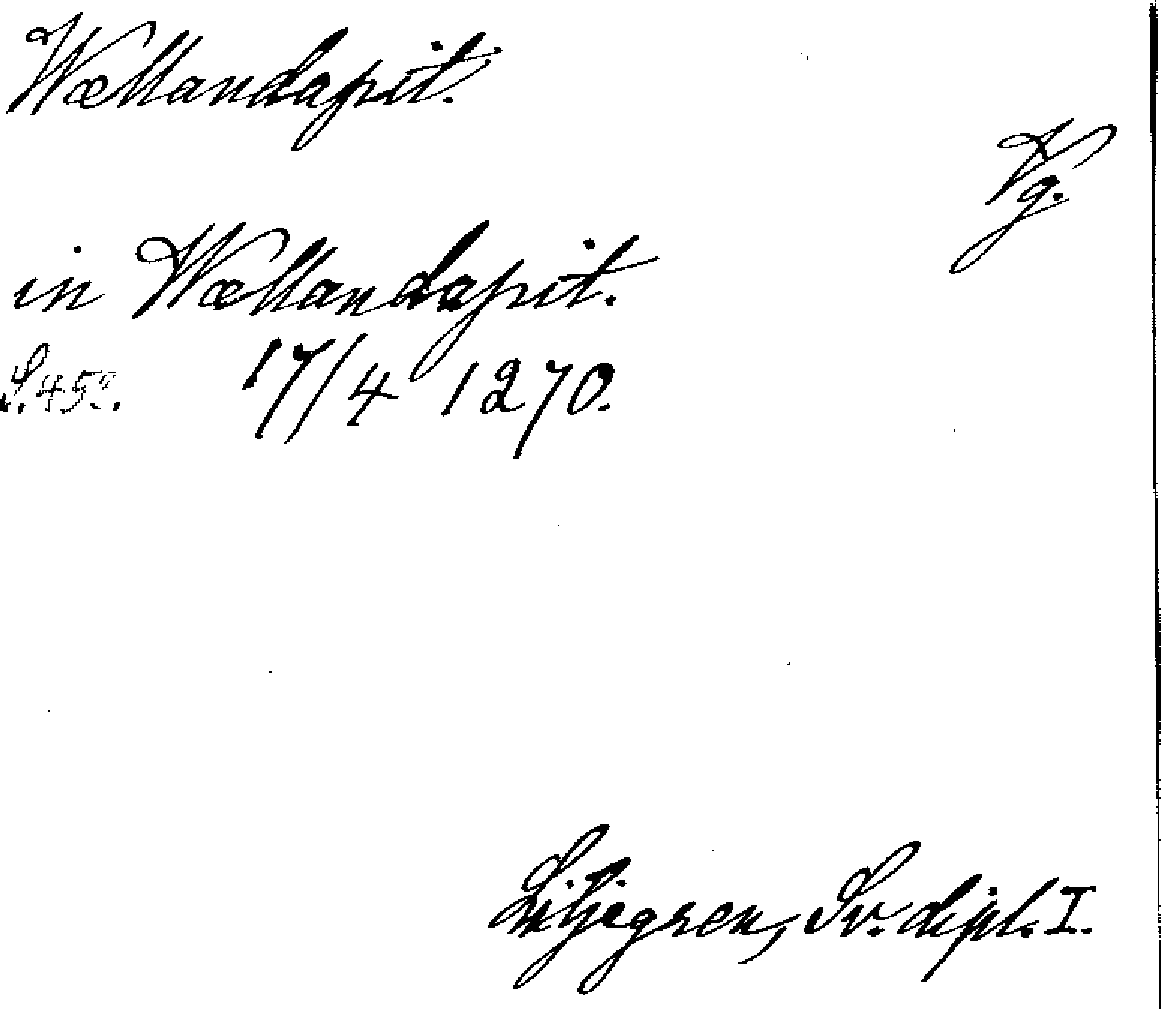 Wællandapit.
Vg.
in Wællandapit.
S. 452. 17/4 1270.
Liljegren, Sv. dipl. I.